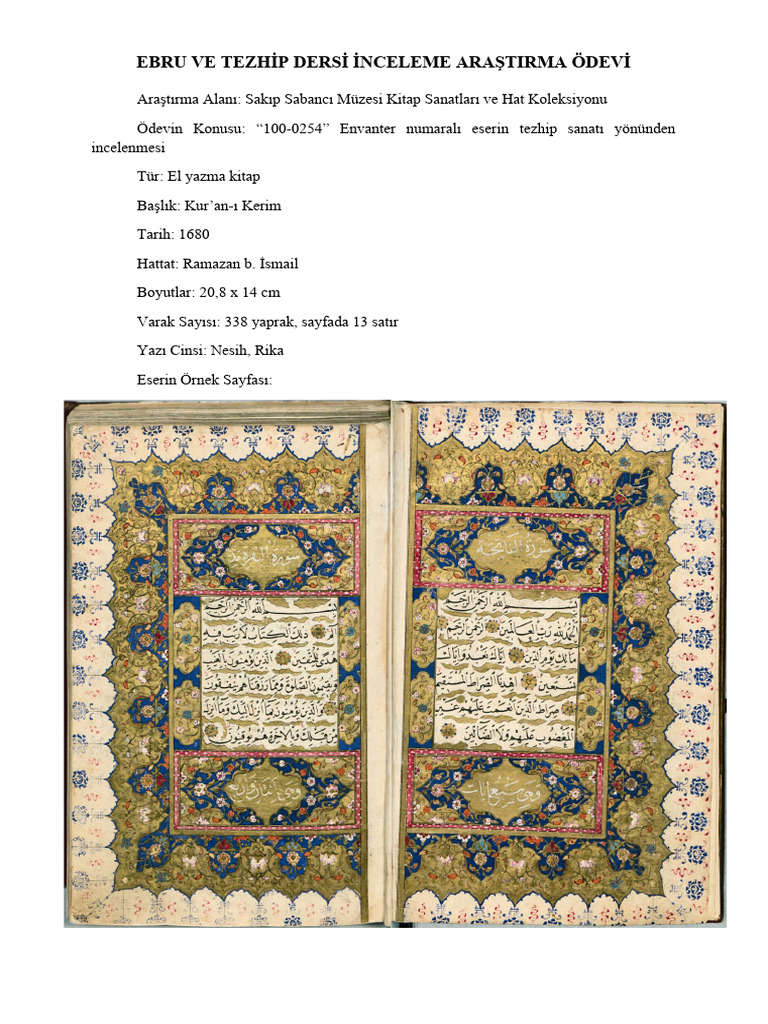 EBRU VE TEZHİP DERSİ İNCELEME ARAŞTIRMA ÖDEVİ
Araştırma Alanı: Sakıp Sabancı Müzesi Kitap Sanatları ve Hat Koleksiyonu
Ödevin Konusu: “100-0254” Envanter numaralı eserin tezhip sanatı yönünden
incelenmesi
Tür: El yazma kitap
Başlık: Kur’an-ı Kerim
Tarih: 1680
Hattat: Ramazan b. İsmail
Boyutlar: 20,8 x 14 cm
Varak Sayısı: 338 yaprak, sayfada 13 satır
Yazı Cinsi: Nesih, Rika
Eserin Örnek Sayfası:
سورة الفاتحة
بسم الله الرحمن الرحيم
الحمد لله رب العالمين الرحمن الرحيم
مالك يوم الدين اياك نعبد واياك
نستعين اهدنا الصراط المستقيم
صراط الذين انعمت عليهم غير
المغضوب عليهم ولا الضالين
وهي سبع ايات
سورة البقرة
بسم الله الرحمن الرحيم
الم ذلك الكتاب لا ريب فيه
هدى للمتقين الذين يؤمنون بالغيب
ويقيمون الصلوة ومما رزقناهم ينفقون
والذين يؤمنون بما انزل اليك وما انزل
من قبلك وبالاخرة هم يوقنون
وهي